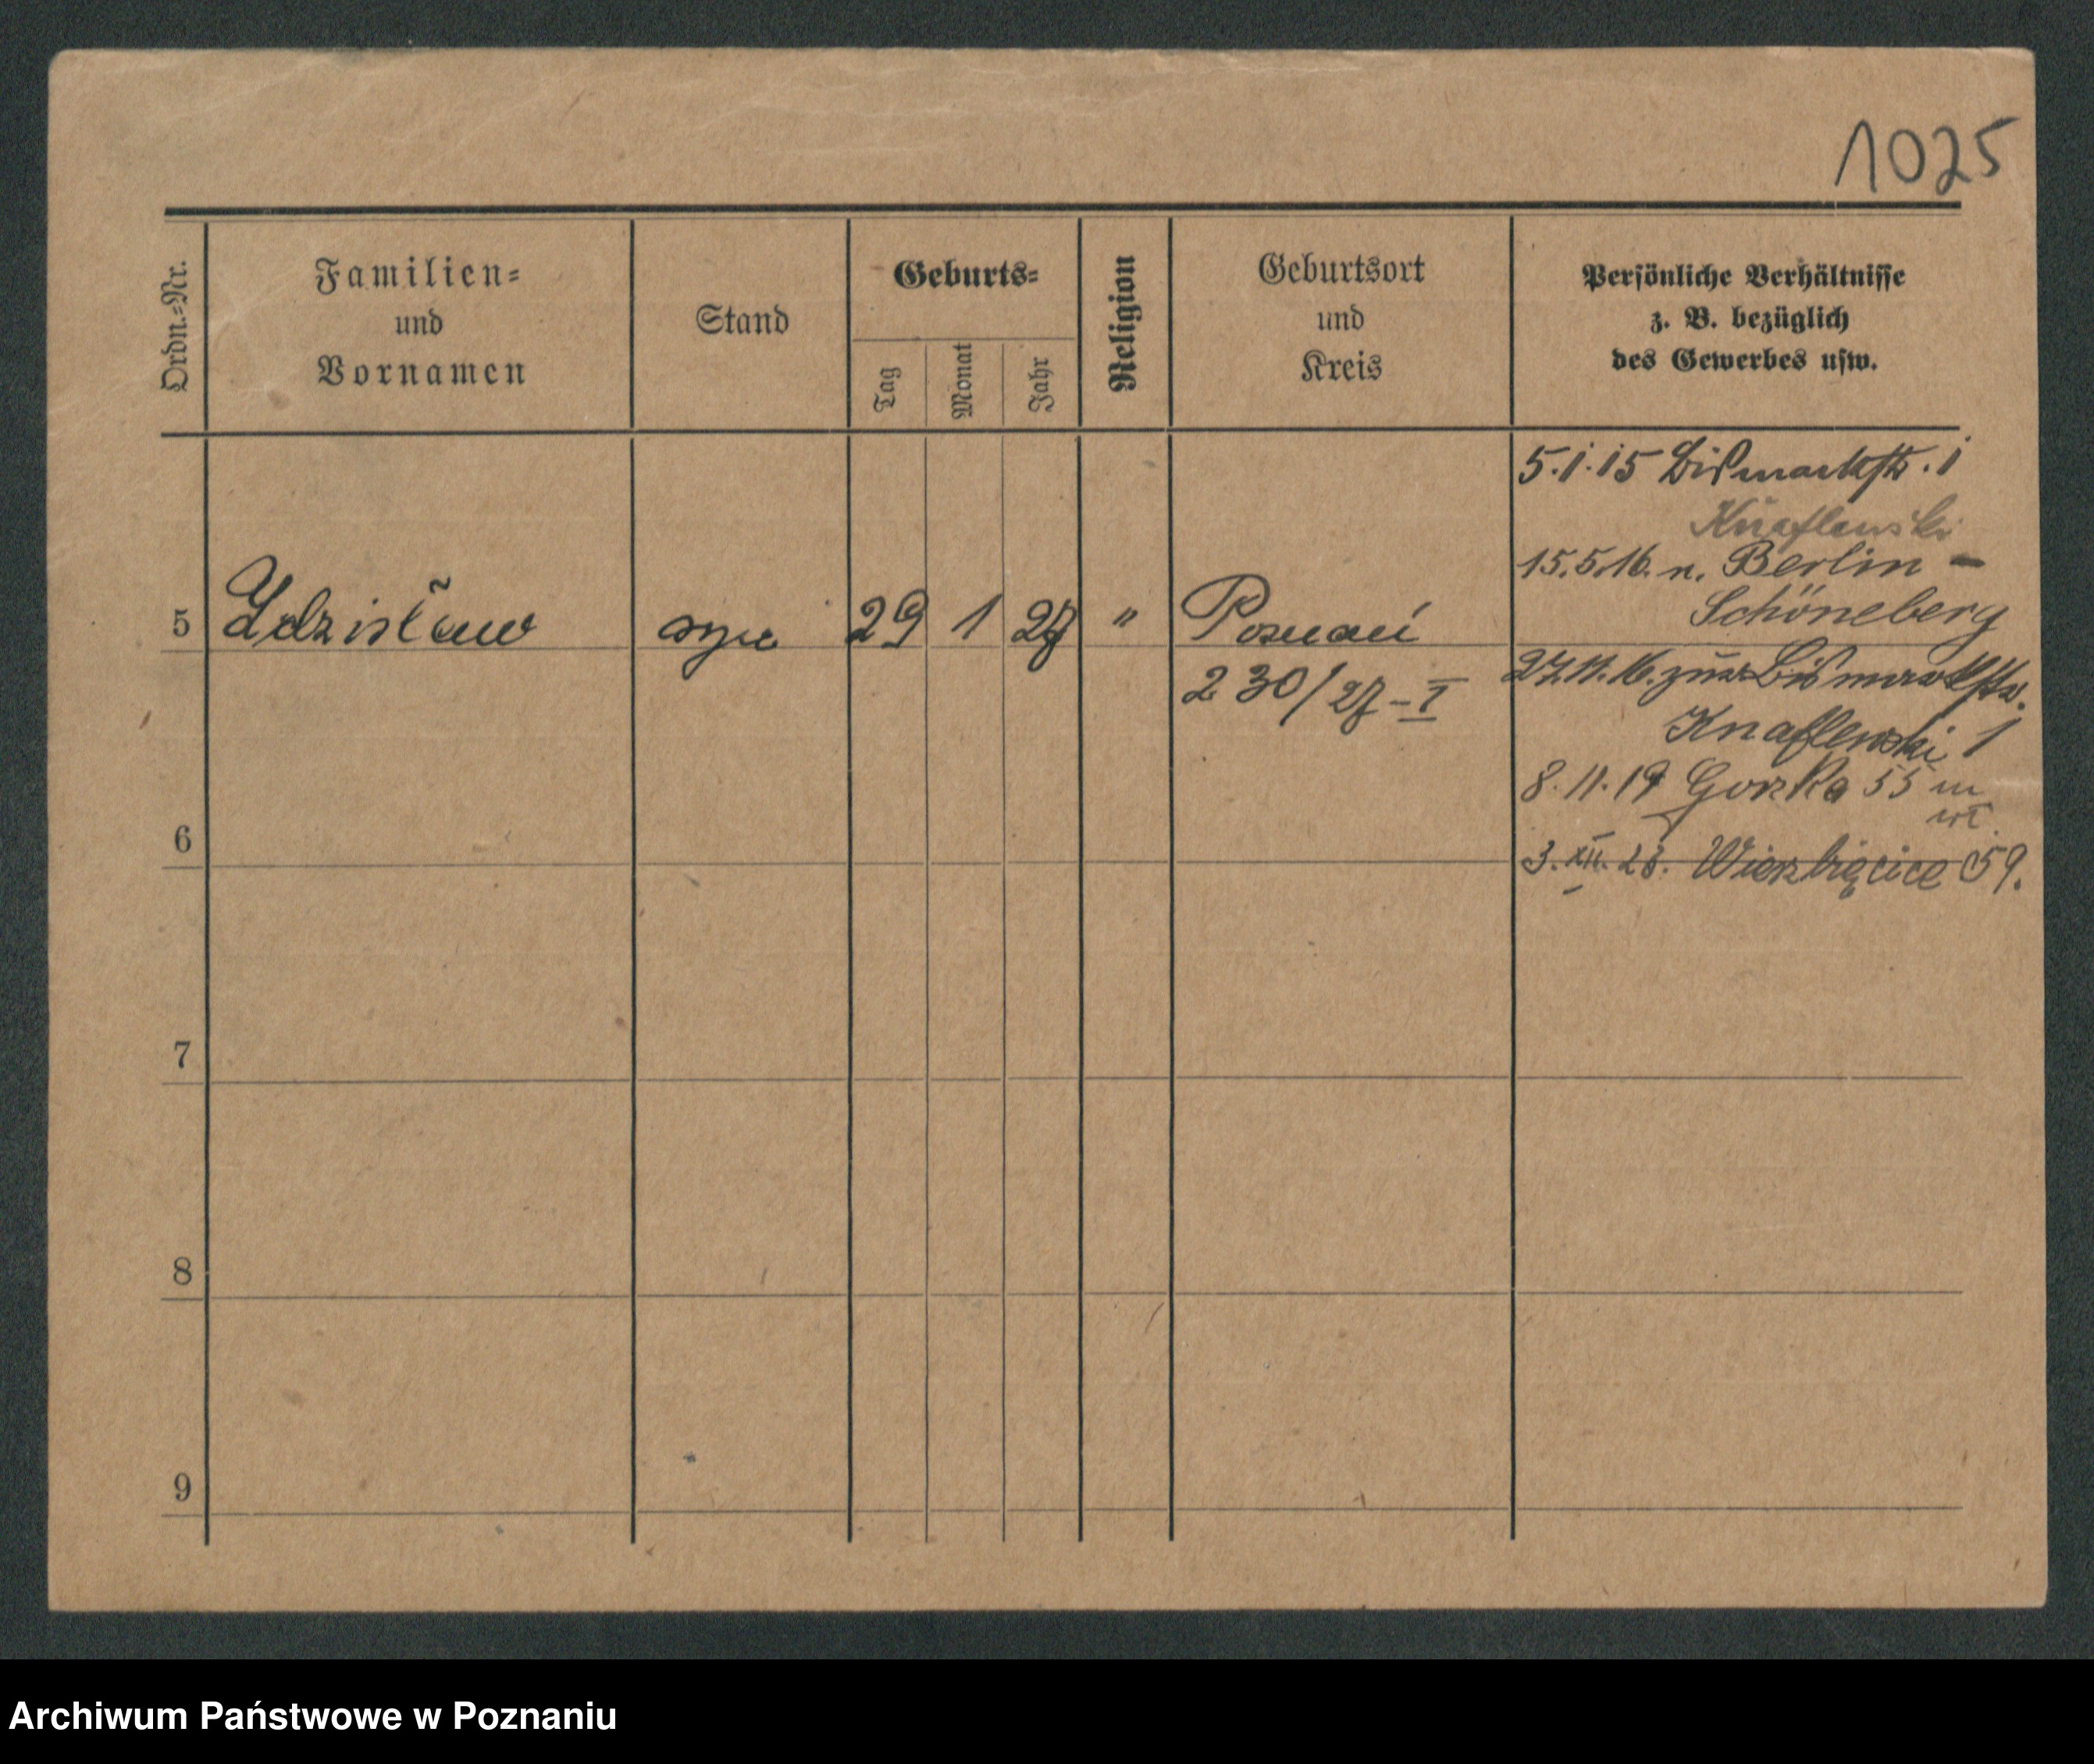 1025
Ordn.-Nr.
Familien-
und
Vornamen
Stand
Geburts-
Tag
Monat
Jahr
Religion
Geburtsort
und
Kreis
Persönliche Verhältnisse
z. B. bezüglich
des Gewerbes usw.
5.1.15 Bismarkstr. 1
Knaflewski
15.5.16. n. Berlin -
Schöneberg
5 Zdzisław syn 29 1 27 " Poznań
230/27-I
27.11.16. zur Bismarkstr.
Knaflewski 1
8.11.19 Gorka 55 m
wł.
6
3.XII.23. Wierzbięcice 59.
7
8
9
Archiwum Państwowe w Poznaniu